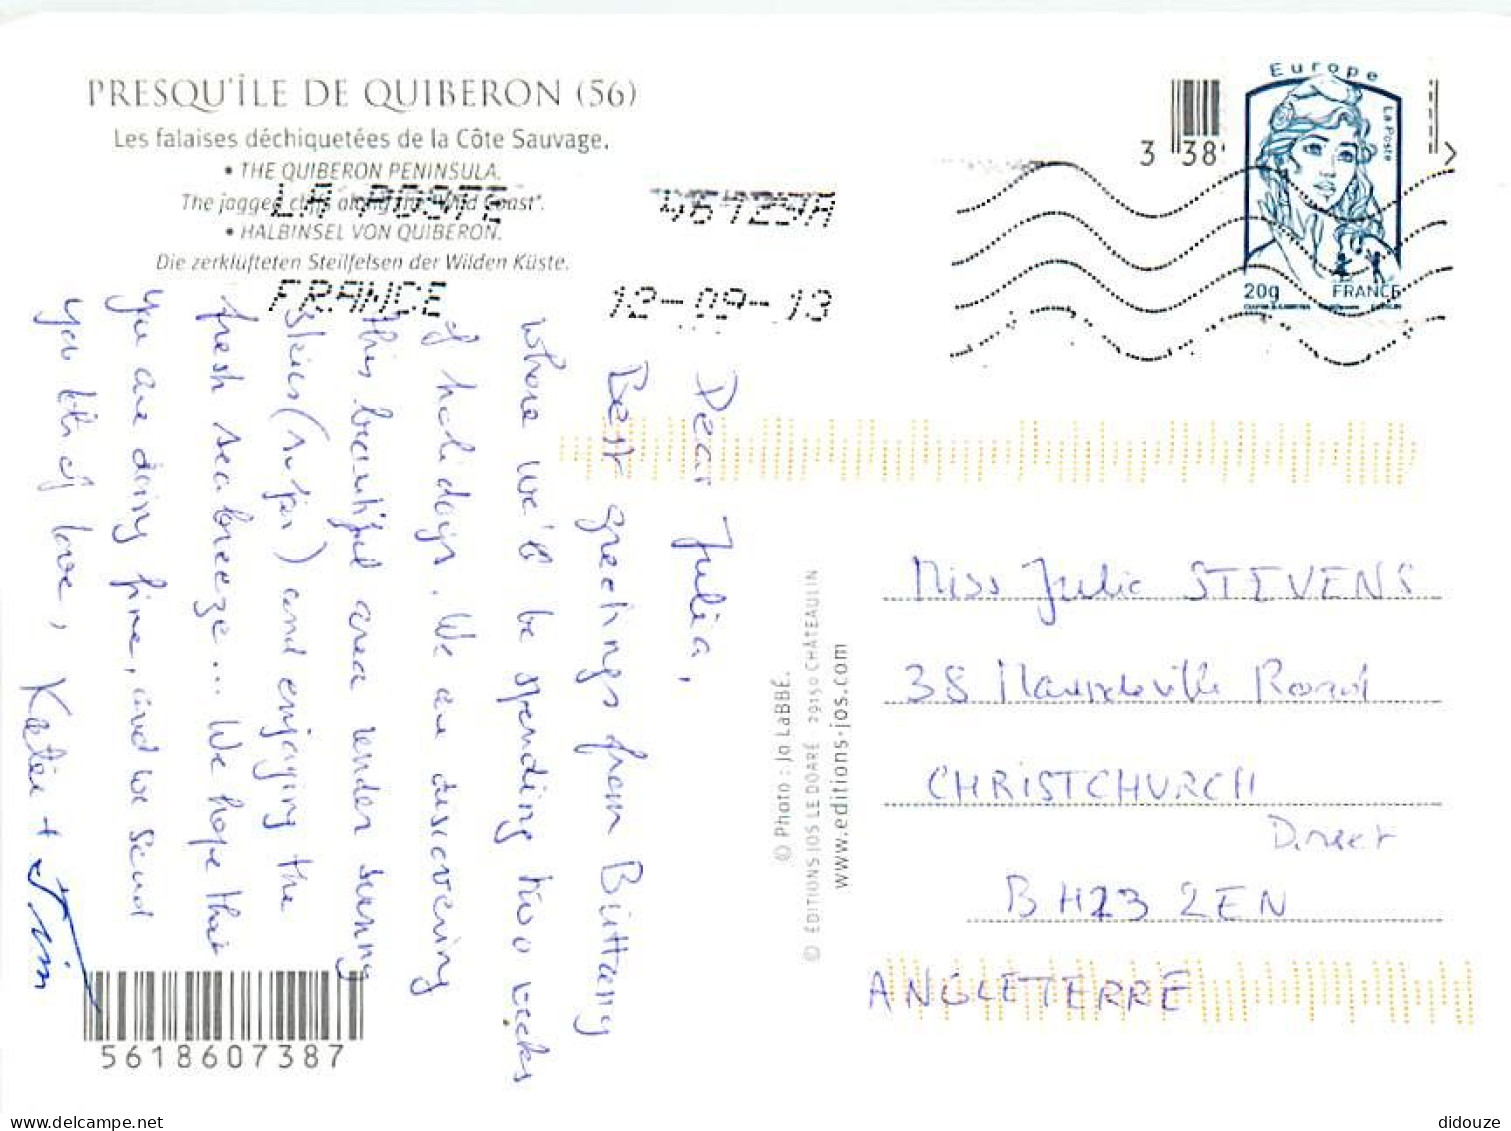 PRESQU'ÎLE DE QUIBERON (56)
Les falaises déchiquetées de la Côte Sauvage.
• THE QUIBERON PENINSULA.
The jagged cliffs along the "Wild Coast".
• HALBINSEL VON QUIBERON.
Die zerklüfteten Steilfelsen der Wilden Küste.
LA POSTE
FRANCE 12-09-13
3 38
Europe
La Poste
20g FRANCE
Dear Julia,
Best greetings from Brittany
where we'll be spending two weeks
of holidays. We are discovering
this beautiful area under sunny
skies (so far) and enjoying the
fresh sea breeze... We hope that
you are doing fine, and we send
you lots of love,
Katie + Jim
© Photo : Jo LaBBÉ.
© ÉDITIONS JOS LE DOARÉ 29150 CHÂTEAULIN
www.editions-jos.com
Miss Julie STEVENS
38 Road
CHRISTCHURCH
Dorset
BH23 2EN
ANGLETERRE
5618607387
didouze